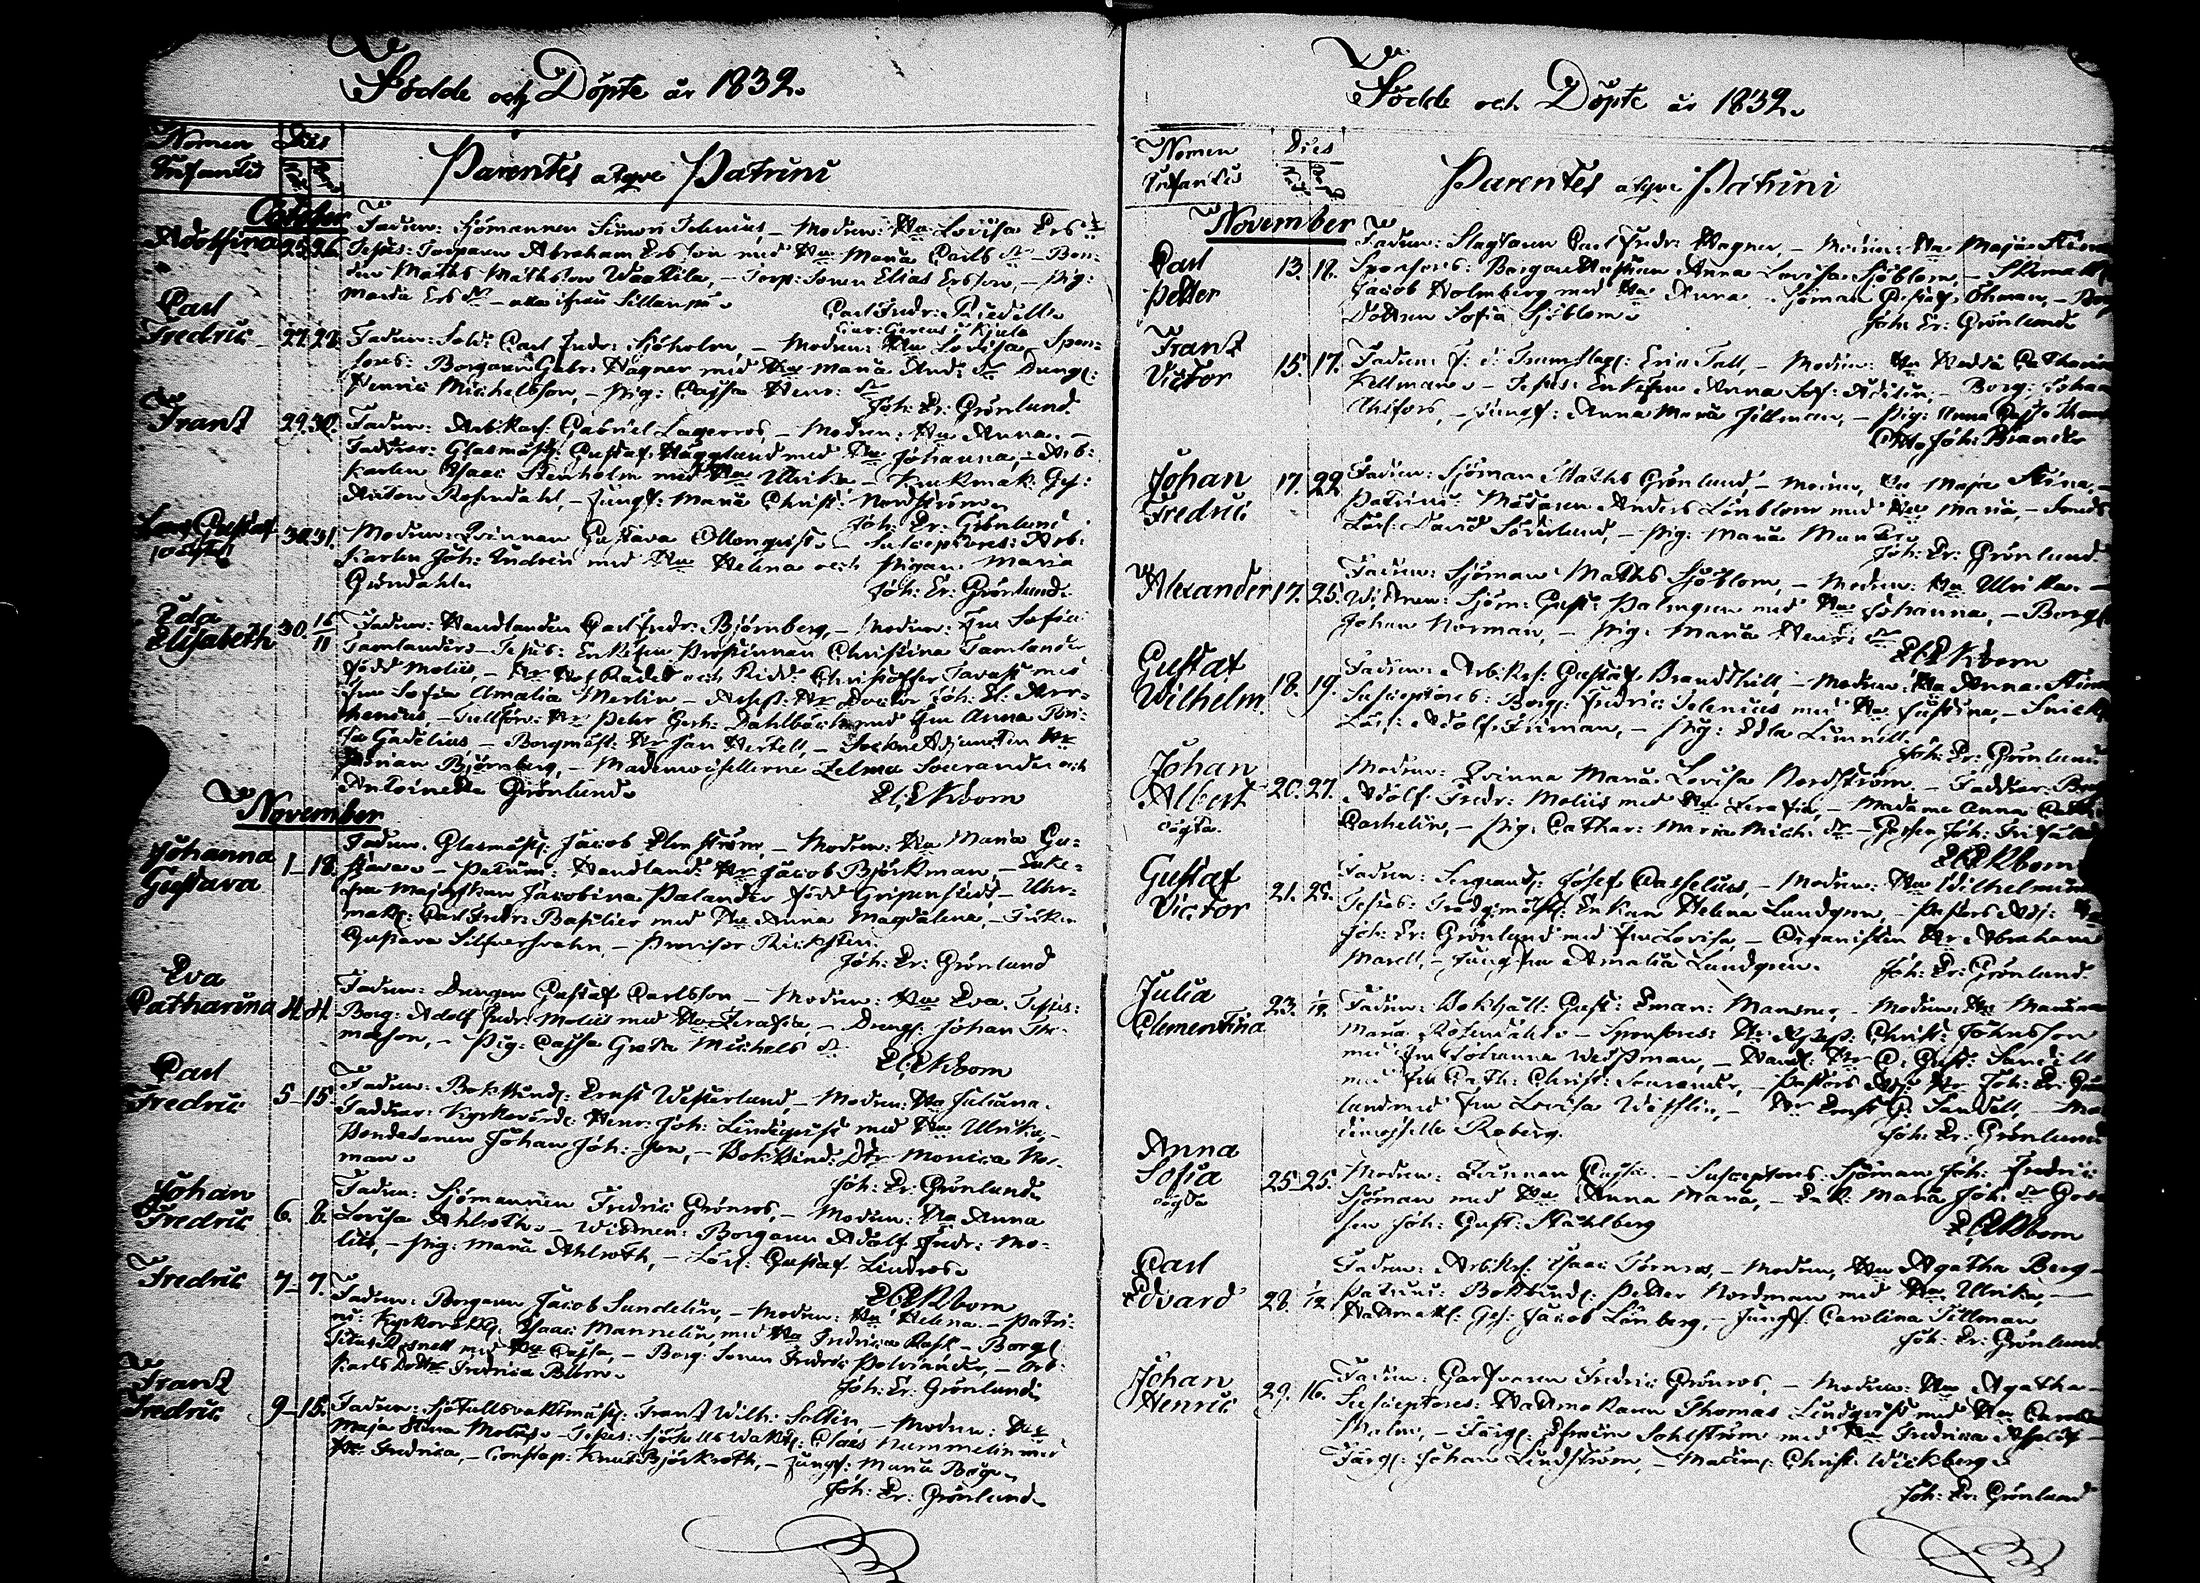 Födde och Döpte år 1832.
Nomen Dies
Infantis
Parentes atque Patrini
October
Adolfina 25. 26. Fadren: Sjömannen Simon Selenius, – Modren: Hu Lovisa Ers dr
Testes: Torparn Abraham Ersson med Hu Maria Carls dr – Bon-
den Matts Mattsson Waatila, – Torp: Sonen Elias Ersson, – Pig:
Maria Ers dr – alla ifrån Sillanpä.
Carl Fredr: Riedell
Car: Gerens i Kjula
Carl
Fredric 27. 28. Fadren: Sold: Carl Fredr: Sjöholm, – Modren: Hu Lovisa – Spon-
sores: Borgaren Gabr: Wagner med Hu Maria And: dr Dräng:
Henric Michelsson, – Pig: Cajsa Henr: dr
Joh: Er: Grönlund
Frans 29. 30. Fadren: Arb:karl: Gabriel Lagerros, – Modren: Hu Anna. –
Faddrar: Glasmäst: Gustaf Hägglund med Hu Johanna, – Arb:
karlen Isaac Stenholm med Hu Ulrika – Krukmak: Ges:
Anton Rosendahl, – Jungf: Maria Christ: Nordström.
Joh: Er: Grönlund
Lars Gustaf
oägta 30. 31. Modren: Qvinnan Gustava Ollonqvist. – Susceptores: Arb:
karlen Joh: Andrein med Hu Helena och Pigan Maria
Gröndahl.
Joh: Er: Grönlund.
Ida
Elisabeth 30. 16/11 Fadren: Handlanden Carl Fredr: Björnberg, – Modren: Fru Sofia
Tamlander. – Testes: Enkefru Prostinnan Christina Tamlander
född Molin, – Hr Hof Rådet och Ridd: Christoffer Tavast med
Fru Sofia Amalia Merlin – Assess: Hr Doctor Joh: El: Arr-
henius, – Tullförv: Hr Peter Gerh: Dahlbäck med Fru Anna Bri-
ta Gadelius, – Borgmäst: Hr Jan Hertell, – Sockne Adjuncten Hr
Johan Björnberg, – Mademoisellerna Zelma Sourander och
Antoinetta Grönlund.
El: Ekbom
November
Johanna
Gustava 1. 18. Fadren. Glasmäst: Jacob Elmström, – Modren: Hu Maria Gu-
stava. – Patrini: Handland: Hr Jacob Björkman, – Enke-
fru Majorskan Jacobina Palander född Gripenstedt, – Uhr-
mak: Carl Fredr: Basilier med Hu Anna Magdalena, – Fröken
Gustava Silfversvahn, – Provisor Ricksten.
Joh: Er: Grönlund
Eva
Catharina 4. 4. Fadren: Drengen Gustaf Carlsson – Modren: Hu Eva. Testes:
Borg: Adolf Fredr: Molin med Hu Serafia, – Dreng: Johan Tho-
masson, – Pig: Cajsa Greta Michels dr
El: Ekbom
Carl
Fredric 5. 15. Fadren: Bokbind: Ernst Westerlund, – Modren: Hu Juliana.
Faddrar: Kyrkovärd: Henr: Joh: Lindqvist med Hu Ulrika, –
Bondesonen Johan Joh: son, – Bokbind: Dtr Monica Nor-
man.
Joh: Er: Grönlund
Johan
Fredric 6. 8. Fadren: Sjömannen Fredric Grönros, – Modren: Hu Anna
Lovisa Ahlroth. – Wittnen: Borgarn Adolf Fredr: Mo-
lin, – Pig: Maria Ahlroth, – Lärl: Gustaf Lindros.
El: Ekbom
Fredric 7. 7. Fadren: Borgarn Jacob Sundelin, – Modren: Hu Helena. – Patri-
ni: Kyrkovakt: Isaac Mannelin med Hu Fredrica Rask – Borg:
Rosnell med Hu Cajsa, – Borg: Sonen Fredric Polviander, – Arb:
karls Dotter Fredrica Blom.
Joh: Er: Grönlund
Frans
Fredric 9. 15. Fadren: Sjötullsvaktmäst: Frans Wilh: Soltin, – Modren: Hu
Maja Stina Molin. – Testes: Sjötulls Wakt: Claes Nummelin med
Hu Fredrica, – Constap: Knut Björkroth, – Jungf: Maria Berg.
Joh: Er: Grönlund.
Födde och Döpte år 1832.
Nomen Dies
Infantis
Parentes atque Patrini
November
Carl
Petter 13. 18. Fadren: Slagtaren Carl Fredr: Wagner, – Modren: Hu Maja Stina
Sponsores: Borgare Hustrun Anna Lovisa Sjöblom, – Skomak:
Jacob Holmberg med Hu Anna. Sjöman Gustaf Öhman, –
Dottren Sofia Sjöblom.
Joh: Er: Grönlund
Frans
Victor 15. 17. Fadren: F: d: Trumslag: Eric Fall, – Modren: Hu Hedda Catharina
Kellman. – Testes: Enkefru Anna Sof: Adelin, – Borg: Johan
Ahlfors, – Jungf: Anna Maria Jillman, – Pig: Anna
Otto Joh: Brander
Johan
Fredric 17. 22 Fadren: Sjöman Matts Grönlund, – Modren, Hu Maja Stina, –
Patrini: Målaren Anders Lönblom med Hu Maria, – Smeds
Lärl: David Söderlund, – Pig: Maria Manter.
Joh: Er: Grönlund.
Alexander 17. 25. Fadren: Sjöman Matts Sjöblom, – Modren: Hu Ulrika. –
Wittnen: Sjöm: Gust: Palmgren med Hu Johanna, – Borg:
Johan Norman, – Pig: Maria Henr: dr
El: Ekbom
Gustaf
Wilhelm 18. 19. Fadren: Arb:karl: Gustaf Brandthill, – Modren: Hu Anna Stina
Susceptores: Borg: Fredric Selenius med Hu Justina, – Snick:
Lärl: Adolf Friman, – Pig: Edla Limnell.
Joh: Er: Grönlund
Johan
Albert
oägta. 20. 27. Modren: Qvinna Maria Lovisa Nordström. – Faddrar: Borg
Adolf Fredr: Molin med Hu Serafia, – Madame Anna
Carhelin, – Pig: Cathar: Maria Mich: dr – Gossen Joh:
El: Ekbom
Gustaf
Victor 21. 25. Fadren: Sergeant: Josef Casselius, – Modren: Hu Wilhelmina
Testes: Trädg:mäst: Enkan Helena Lundgren, – Pastors Adj: Hr
Joh: Er: Grönlund med Fru Lovisa, – Organisten Hr Abraham
Marell, – Jungfru Amalia Lundgren.
Joh: Er: Grönlund
Julia
Clementina 23. Fadren: Bokhåll: Gust: Eman: Mansner, – Modren: Hu
Maria Rosendahl. – Sponsores: Hr Christ: Johnsson
med Fru Johanna Widpman, – Handl: Hr C: Gust: Sandell
med Fru Cath: Christ: Sourander, – Pastors Adj: Hr Joh: Er: Grön-
lund med Fru Lovisa Westlin, – Hr Ernst G: Sandell, – Ma-
demoiselle Roberg.
Joh: Er: Grönlund
Anna
Sofia
oägta 25. 25. Modren: Qvinnan Cajsa. – Susceptores: Sjöman Joh: Fredric
Sjöman med Hu Anna Maria, – Maria Joh: dr Gos-
sen Joh: Gust: Ståhlberg
El: Ekbom
Carl
Edvard 28. 1/12 Fadren: Arb:karl: Isaac Törnros, – Modren, Hu Agatha Berg –
Patrini: Bokbind: Petter Nordman med Hu Ulrika, –
Hattmak: Ges: Jacob Lönberg, – Jungf: Carolina Tillman
Joh: Er: Grönlund
Johan
Henric 29. 16. Fadren: Garfvaren Fredric Grönros, – Modren: Hu Agatha –
Susceptores: Hattmakaren Thomas Lindqvist med Hu
Malm, – Färg: Efraim Sahlström med Hu Fredrica Asplöf –
Färg: Johan Lindström, – Madem: Christ: Wickberg.
Joh: Er: Grönlund